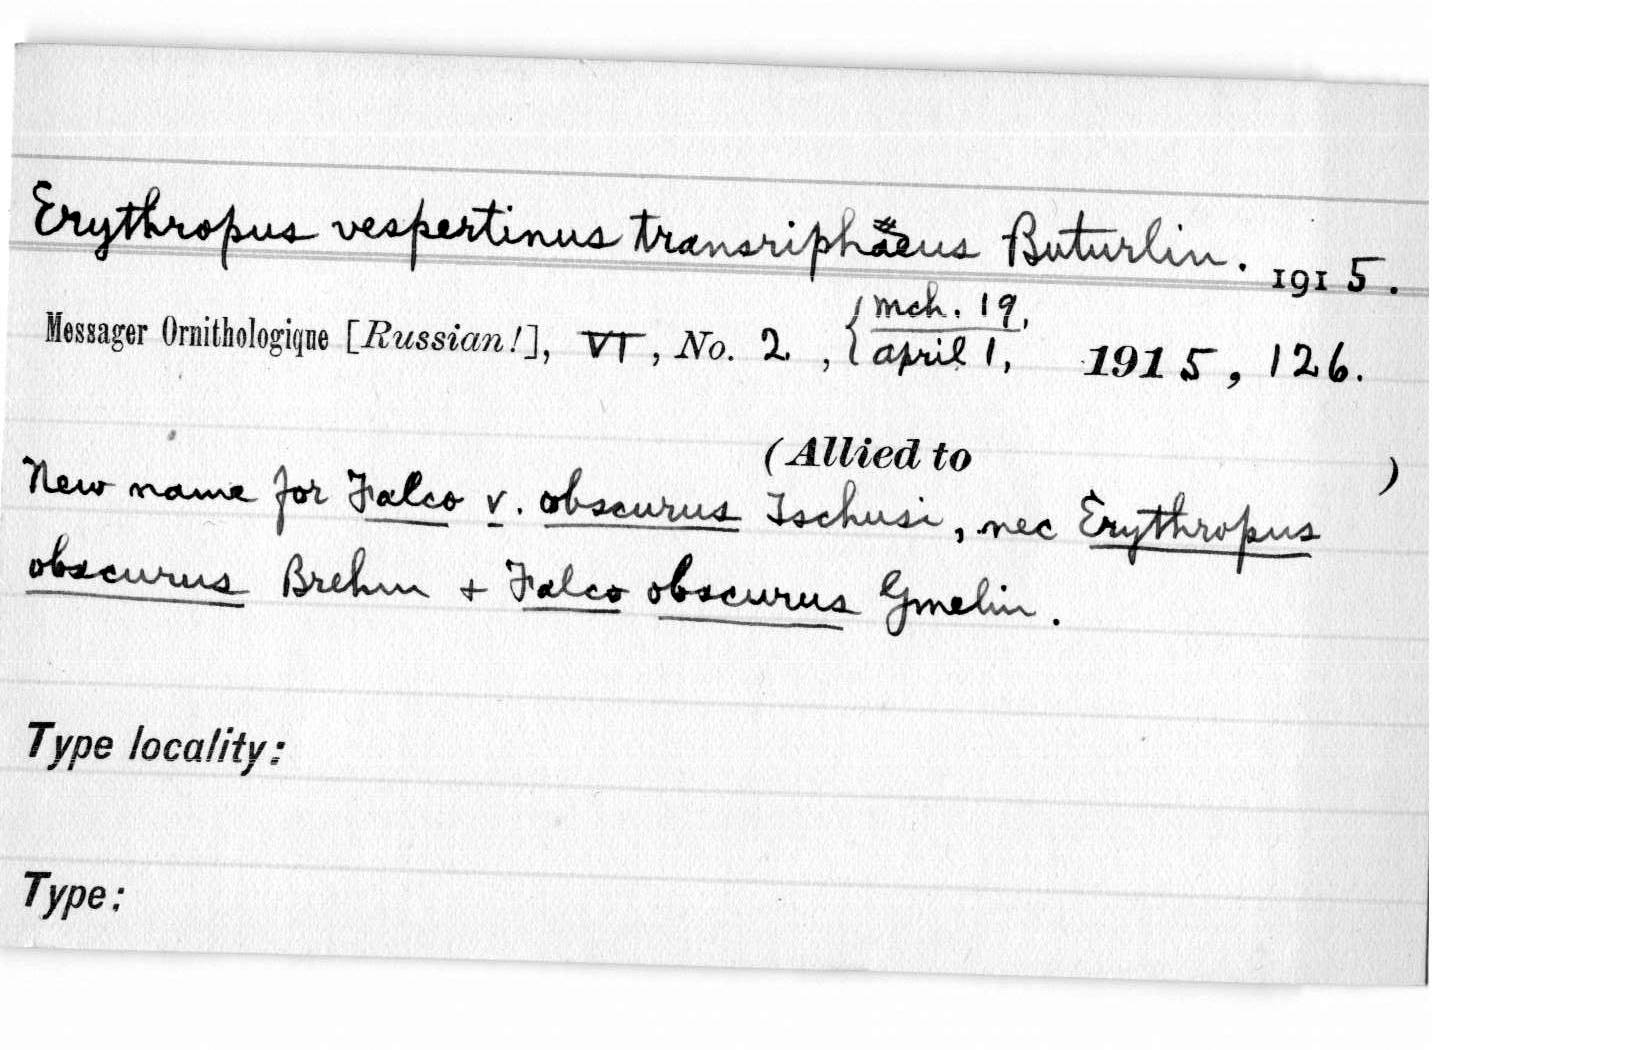 Erythropus vespertinus transriphaeus Buturlin. 1915.
Messager Ornithologique [Russian!], VI, No. 2, { Mch. 19, April 1, 1915, 126.
(Allied to )
New name for Falco v. obscurus Tschusi, nec Erythropus
obscurus Brehm + Falco obscurus Gmelin.
Type locality:
Type: